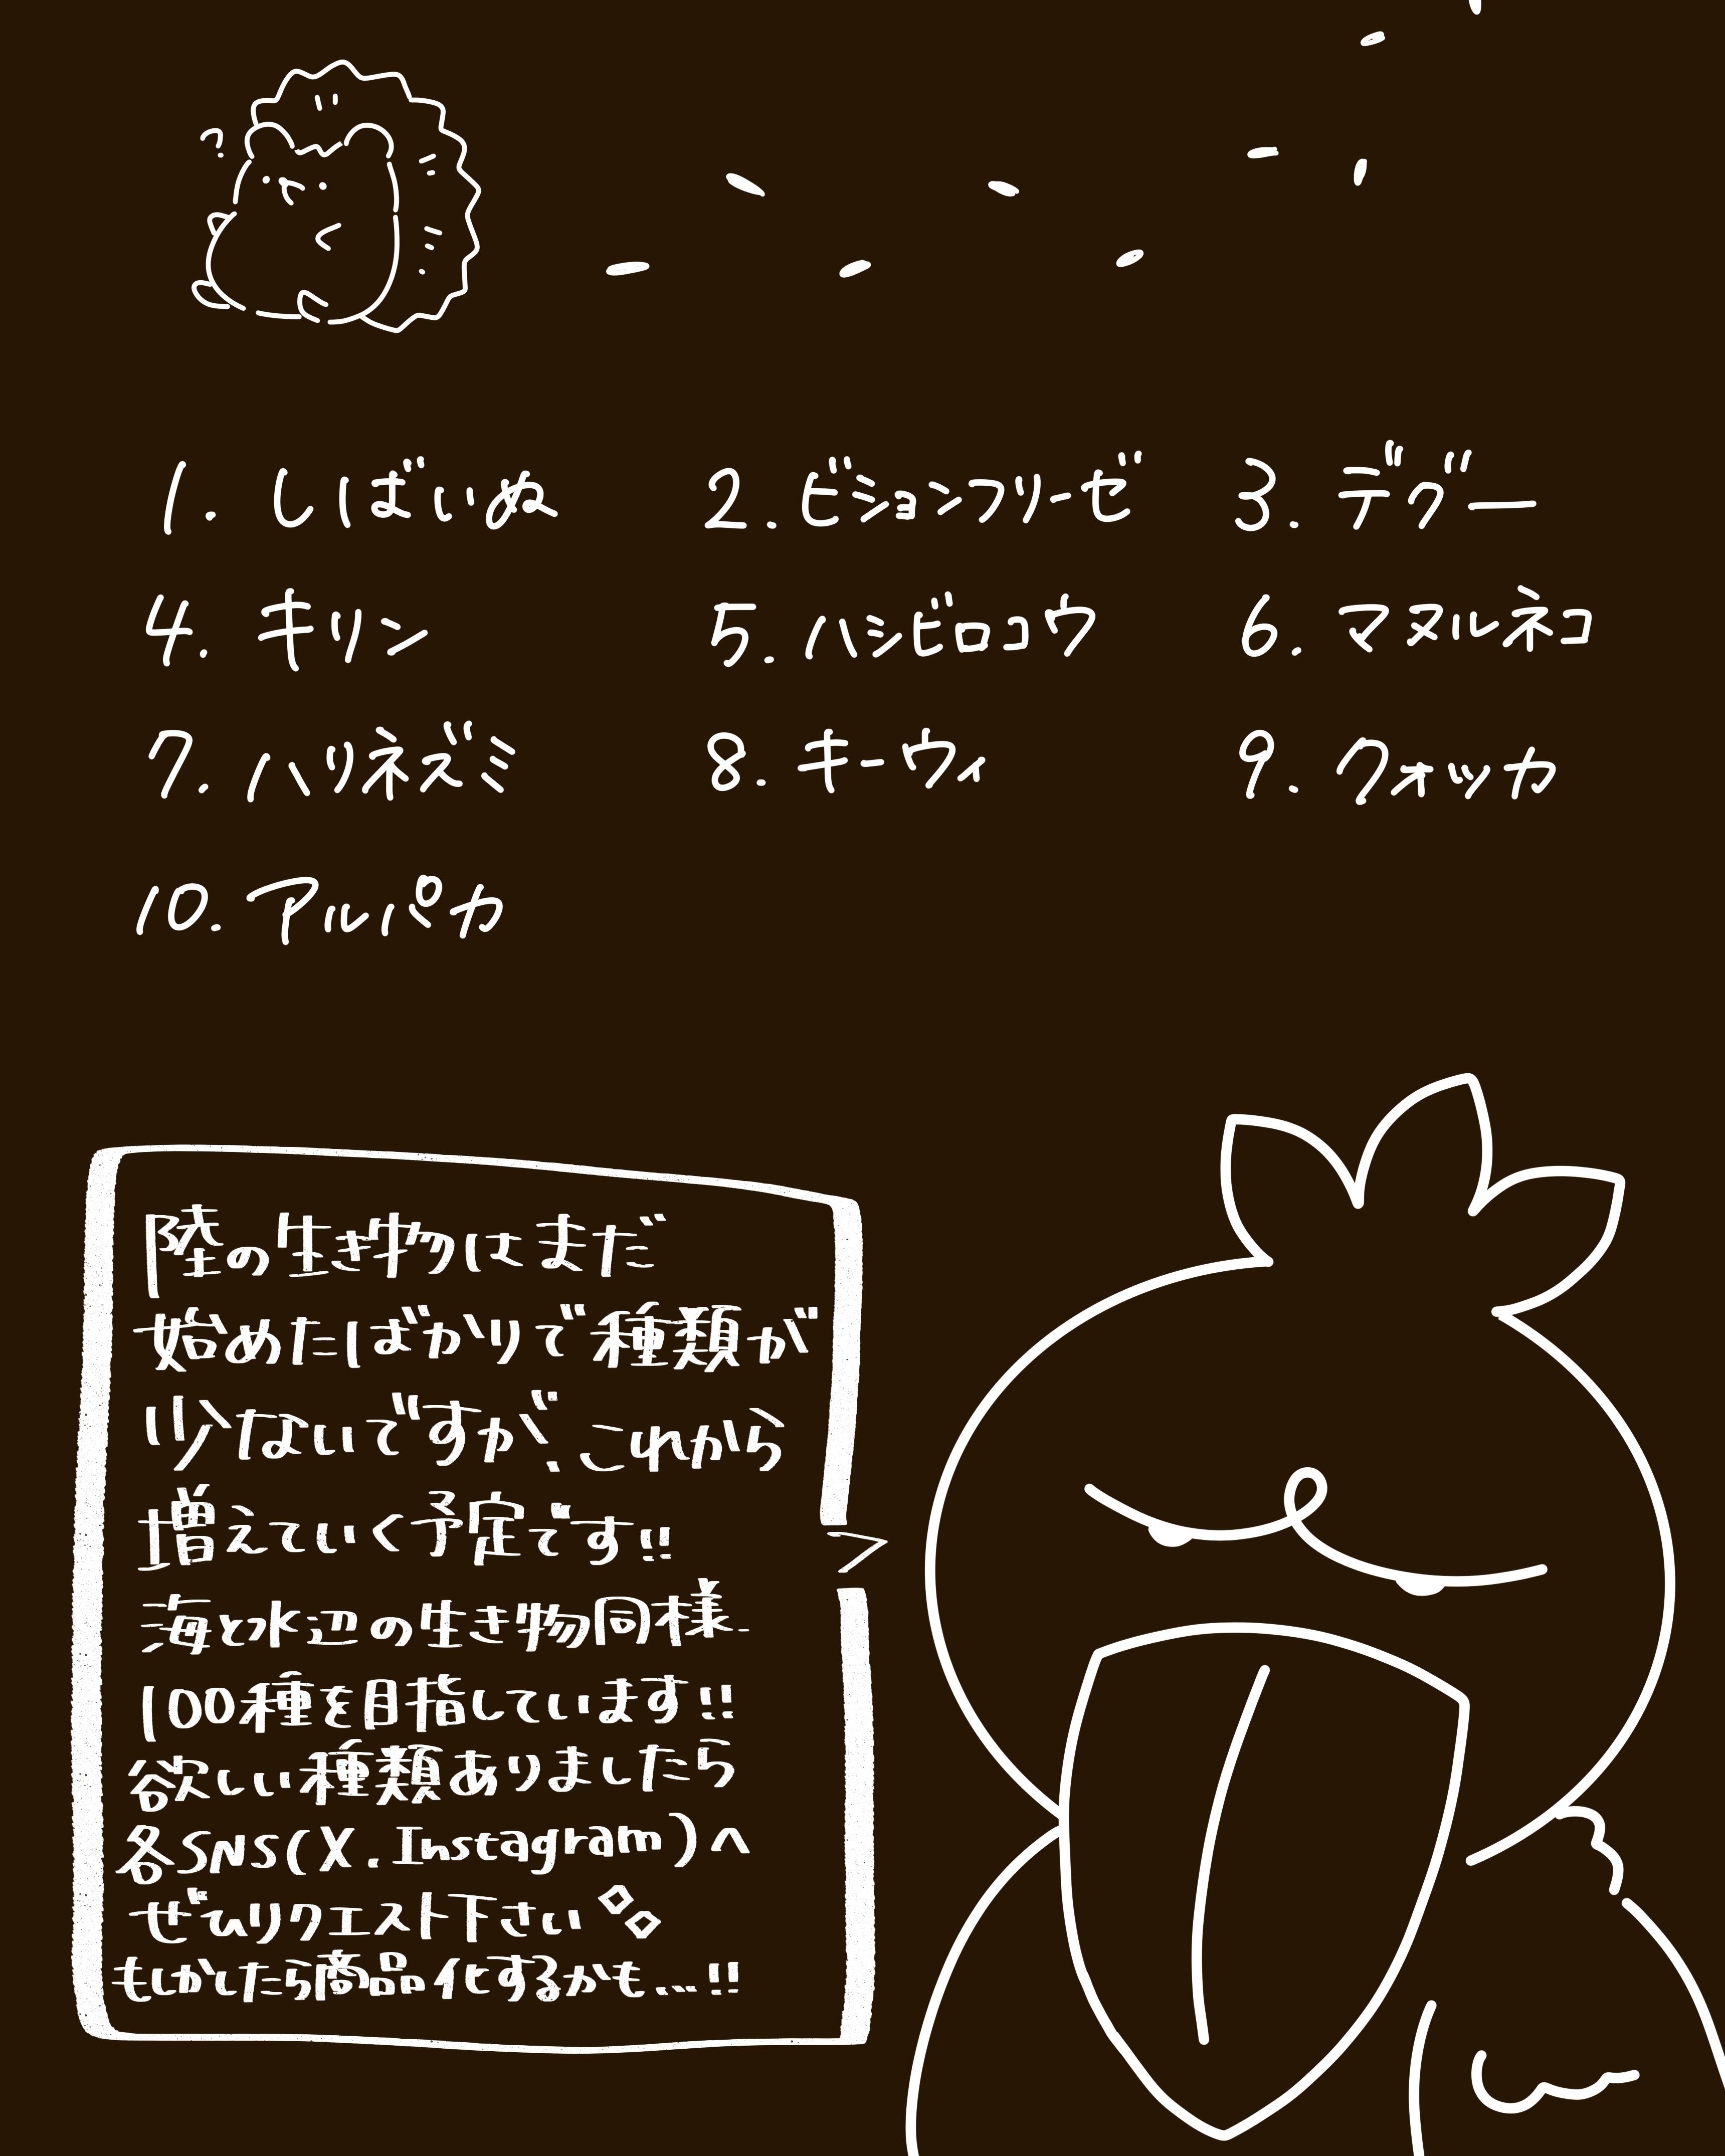 ?
1. しばいぬ 2. ビションフリーゼ 3. デグー
4. キリン 5. ハシビロコウ 6. マヌルネコ
7. ハリネズミ 8. キーウィ 9. クォッカ
10. アルパカ
陸の生き物はまだ
始めたばかりで種類が
少ないですが、これから
増えていく予定です!!
海と水辺の生き物同様、
100種を目指しています!!
欲しい種類ありましたら
各SNS(X.Instagram)へ
ぜひリクエスト下さい
もしかしたら商品化するかも...!!